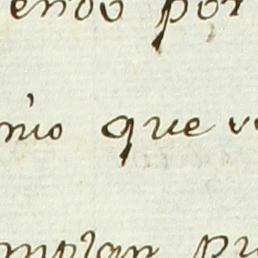 endo por
nio que ve
mplan pu